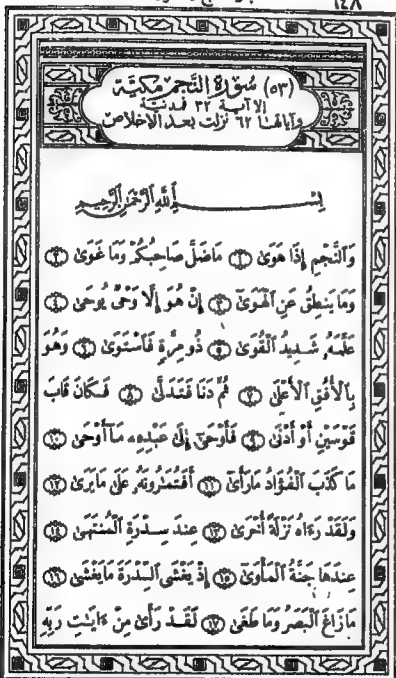 ١٤٨
(٥٣) سُورَةُ النَّجْمِ مَكِيَّة
إلا آية ٣٢ فمدنية
وآياتها ٦٢ نزلت بعد الإخلاص
بِسْمِ اللَّهِ الرَّحْمَٰنِ الرَّحِيمِ
وَٱلنَّجْمِ إِذَا هَوَىٰ ١ مَا ضَلَّ صَاحِبُكُمْ وَمَا غَوَىٰ ٢
وَمَا يَنطِقُ عَنِ ٱلْهَوَىٰٓ ٣ إِنْ هُوَ إِلَّا وَحْىٌ يُوحَىٰ ٤
عَلَّمَهُۥ شَدِيدُ ٱلْقُوَىٰ ٥ ذُو مِرَّةٍ فَٱسْتَوَىٰ ٦ وَهُوَ
بِٱلْأُفُقِ ٱلْأَعْلَىٰ ٧ ثُمَّ دَنَا فَتَدَلَّىٰ ٨ فَكَانَ قَابَ
قَوْسَيْنِ أَوْ أَدْنَىٰ ٩ فَأَوْحَىٰٓ إِلَىٰ عَبْدِهِۦ مَآ أَوْحَىٰ ١٠
مَا كَذَبَ ٱلْفُؤَادُ مَا رَأَىٰٓ ١١ أَفَتُمَٰرُونَهُۥ عَلَىٰ مَا يَرَىٰ ١٢
وَلَقَدْ رَءَاهُ نَزْلَةً أُخْرَىٰ ١٣ عِندَ سِدْرَةِ ٱلْمُنتَهَىٰ ١٤
عِندَهَا جَنَّةُ ٱلْمَأْوَىٰٓ ١٥ إِذْ يَغْشَى ٱلسِّدْرَةَ مَا يَغْشَىٰ ١٦
مَا زَاغَ ٱلْبَصَرُ وَمَا طَغَىٰ ١٧ لَقَدْ رَأَىٰ مِنْ ءَايَٰتِ رَبِّهِ